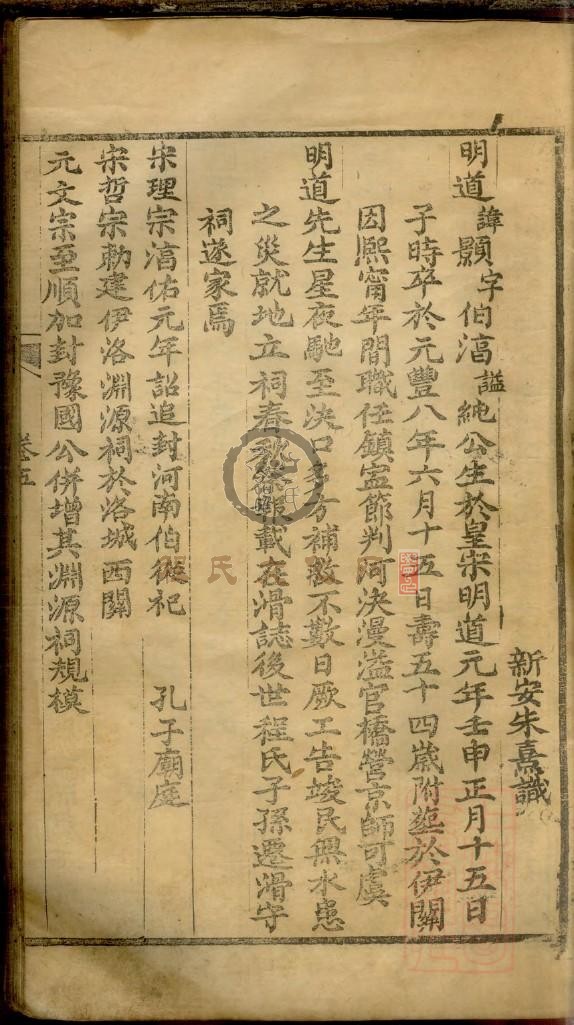 新安朱熹識
明道諱顥字伯湻謚純公生於皇宋明道元年壬申正月十五日
子時卒於元豐八年六月十五日壽五十四歲附塟於伊闕
因熈甯年間職任鎮寍節判河決漫溢官橋營京師可虞
明道先生星夜馳至決口多方補救不數日厥工告竣民無水患
之災就地立祠春秋祭報載在滑誌後世程氏子孫遷滑守
祠遂家焉
宋理宗湻佑元年詔追封河南伯從祀 孔子廟庭
宋哲宗勅建伊洛淵源祠於洛城西關
元文宗至順加封豫國公併增其淵源祠規模
卷五